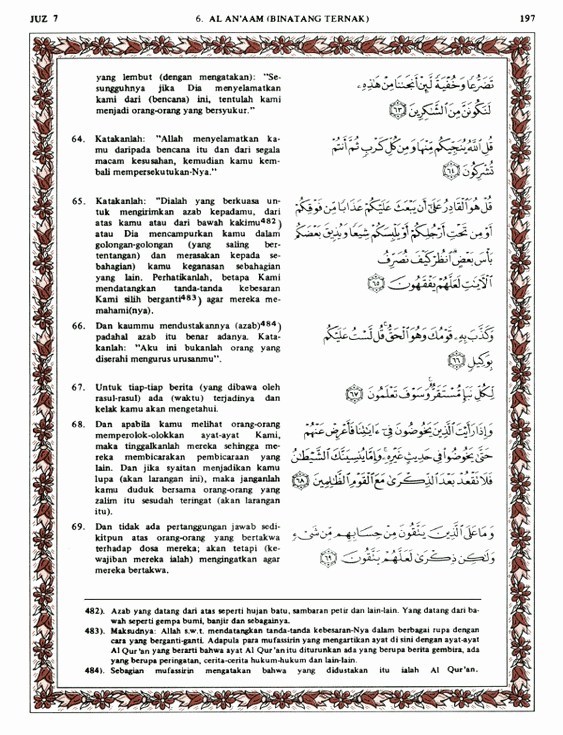 JUZ 7 6. AL AN'AAM (BINATANG TERNAK) 197
yang lembut (dengan mengatakan): "Se-
sungguhnya jika Dia menyelamatkan
kami dari (bencana) ini, tentulah kami
menjadi orang-orang yang bersyukur."
تَضَرُّعًا وَخُفْيَةً لَّئِنْ أَنجَىٰنَا مِنْ هَٰذِهِۦ
لَنَكُونَنَّ مِنَ ٱلشَّٰكِرِينَ ٦٣
64. Katakanlah: "Allah menyelamatkan ka-
mu daripada bencana itu dan dari segala
macam kesusahan, kemudian kamu kem-
bali mempersekutukan-Nya."
قُلِ ٱللَّهُ يُنَجِّيكُم مِّنْهَا وَمِن كُلِّ كَرْبٍ ثُمَّ أَنتُمْ
تُشْرِكُونَ ٦٤
65. Katakanlah: "Dialah yang berkuasa un-
tuk mengirimkan azab kepadamu, dari
atas kamu atau dari bawah kakimu482)
atau Dia mencampurkan kamu dalam
golongan-golongan (yang saling ber-
tentangan) dan merasakan kepada se-
bahagian) kamu keganasan sebahagian
yang lain. Perhatikanlah, betapa Kami
mendatangkan tanda-tanda kebesaran
Kami silih berganti483) agar mereka me-
mahami(nya).
قُلْ هُوَ ٱلْقَادِرُ عَلَىٰٓ أَن يَبْعَثَ عَلَيْكُمْ عَذَابًا مِّن فَوْقِكُمْ
أَوْ مِن تَحْتِ أَرْجُلِكُمْ أَوْ يَلْبِسَكُمْ شِيَعًا وَيُذِيقَ بَعْضَكُم
بَأْسَ بَعْضٍ ٱنظُرْ كَيْفَ نُصَرِّفُ
ٱلْأٓيَٰتِ لَعَلَّهُمْ يَفْقَهُونَ ٦٥
66. Dan kaummu mendustakannya (azab)484)
padahal azab itu benar adanya. Kata-
kanlah: "Aku ini bukanlah orang yang
diserahi mengurus urusanmu".
وَكَذَّبَ بِهِۦ قَوْمُكَ وَهُوَ ٱلْحَقُّ قُل لَّسْتُ عَلَيْكُم
بِوَكِيلٍ ٦٦
67. Untuk tiap-tiap berita (yang dibawa oleh
rasul-rasul) ada (waktu) terjadinya dan
kelak kamu akan mengetahui.
لِّكُلِّ نَبَإٍ مُّسْتَقَرٌّ وَسَوْفَ تَعْلَمُونَ ٦٧
68. Dan apabila kamu melihat orang-orang
memperolok-olokkan ayat-ayat Kami,
maka tinggalkanlah mereka sehingga me-
reka membicarakan pembicaraan yang
lain. Dan jika syaitan menjadikan kamu
lupa (akan larangan ini), maka janganlah
kamu duduk bersama orang-orang yang
zalim itu sesudah teringat (akan larangan
itu).
وَإِذَا رَأَيْتَ ٱلَّذِينَ يَخُوضُونَ فِىٓ ءَايَٰتِنَا فَأَعْرِضْ عَنْهُمْ
حَتَّىٰ يَخُوضُوا۟ فِى حَدِيثٍ غَيْرِهِۦ وَإِمَّا يُنسِيَنَّكَ ٱلشَّيْطَٰنُ
فَلَا تَقْعُدْ بَعْدَ ٱلذِّكْرَىٰ مَعَ ٱلْقَوْمِ ٱلظَّٰلِمِينَ ٦٨
69. Dan tidak ada pertanggungan jawab sedi-
kitpun atas orang-orang yang bertakwa
terhadap dosa mereka; akan tetapi (ke-
wajiban mereka ialah) mengingatkan agar
mereka bertakwa.
وَمَا عَلَى ٱلَّذِينَ يَتَّقُونَ مِنْ حِسَابِهِم مِّن شَىْءٍ
وَلَٰكِن ذِكْرَىٰ لَعَلَّهُمْ يَتَّقُونَ ٦٩
482). Azab yang datang dari atas seperti hujan batu, sambaran petir dan lain-lain. Yang datang dari ba-
wah seperti gempa bumi, banjir dan sebagainya.
483). Maksudnya: Allah s.w.t. mendatangkan tanda-tanda kebesaran-Nya dalam berbagai rupa dengan
cara yang berganti-ganti. Adapula para mufassirin yang mengartikan ayat di sini dengan ayat-ayat
Al Qur'an yang berarti bahwa ayat Al Qur'an itu diturunkan ada yang berupa berita gembira, ada
yang berupa peringatan, cerita-cerita hukum-hukum dan lain-lain.
484). Sebagian mufassirin mengatakan bahwa yang didustakan itu ialah Al Qur'an.